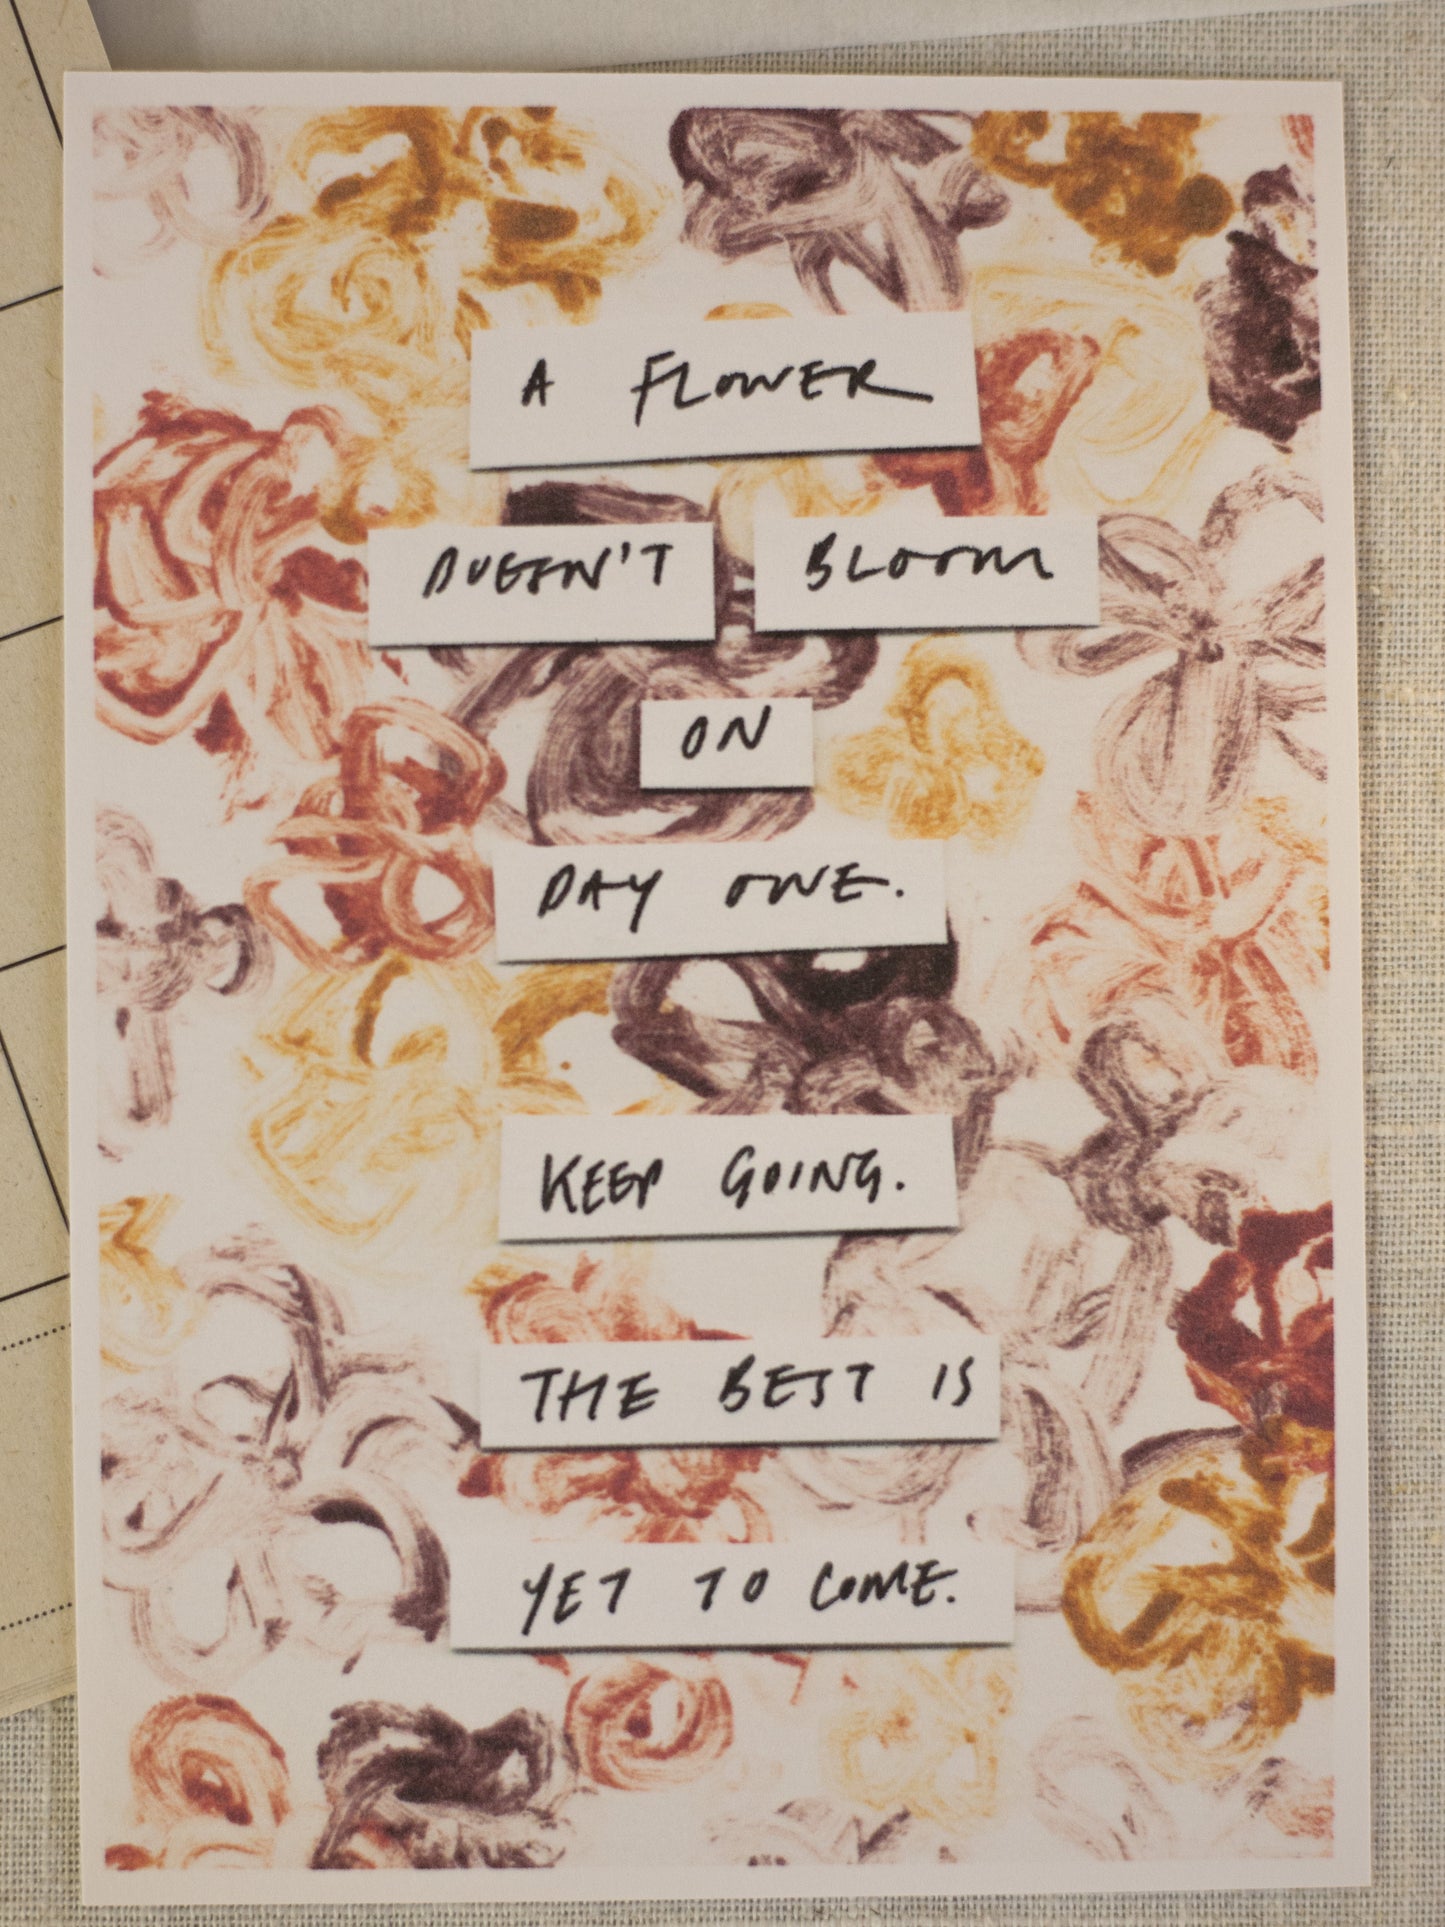 A FLOWER
DOESN'T BLOOM
ON
DAY ONE.
KEEP GOING.
THE BEST IS
YET TO COME.